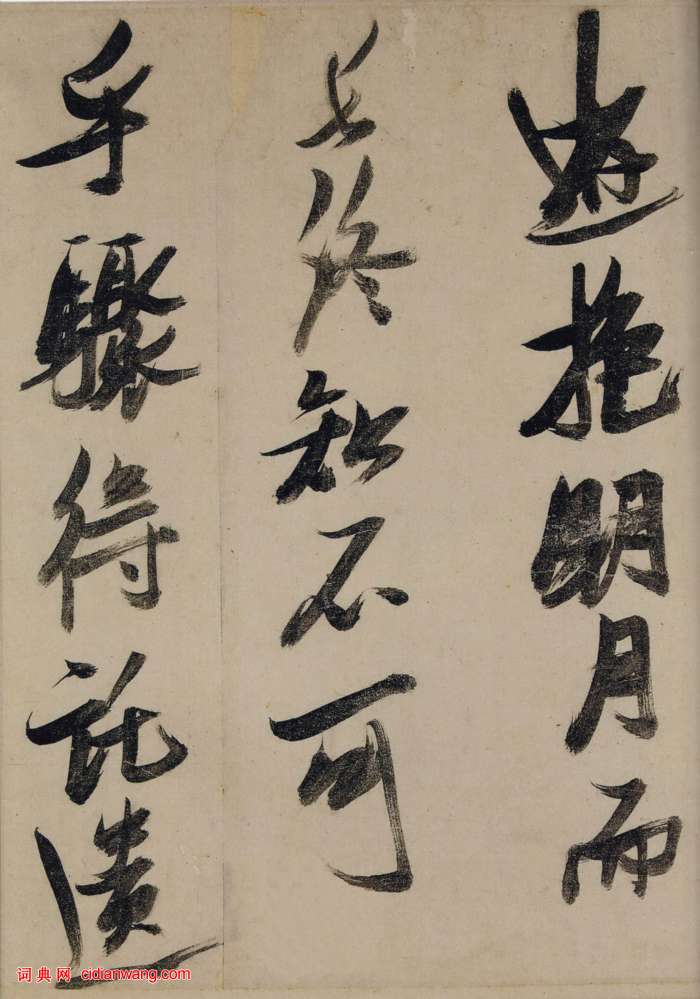 遊抱明月而
長終知不可
乎驟得託遺
词典网 cidianwang.com